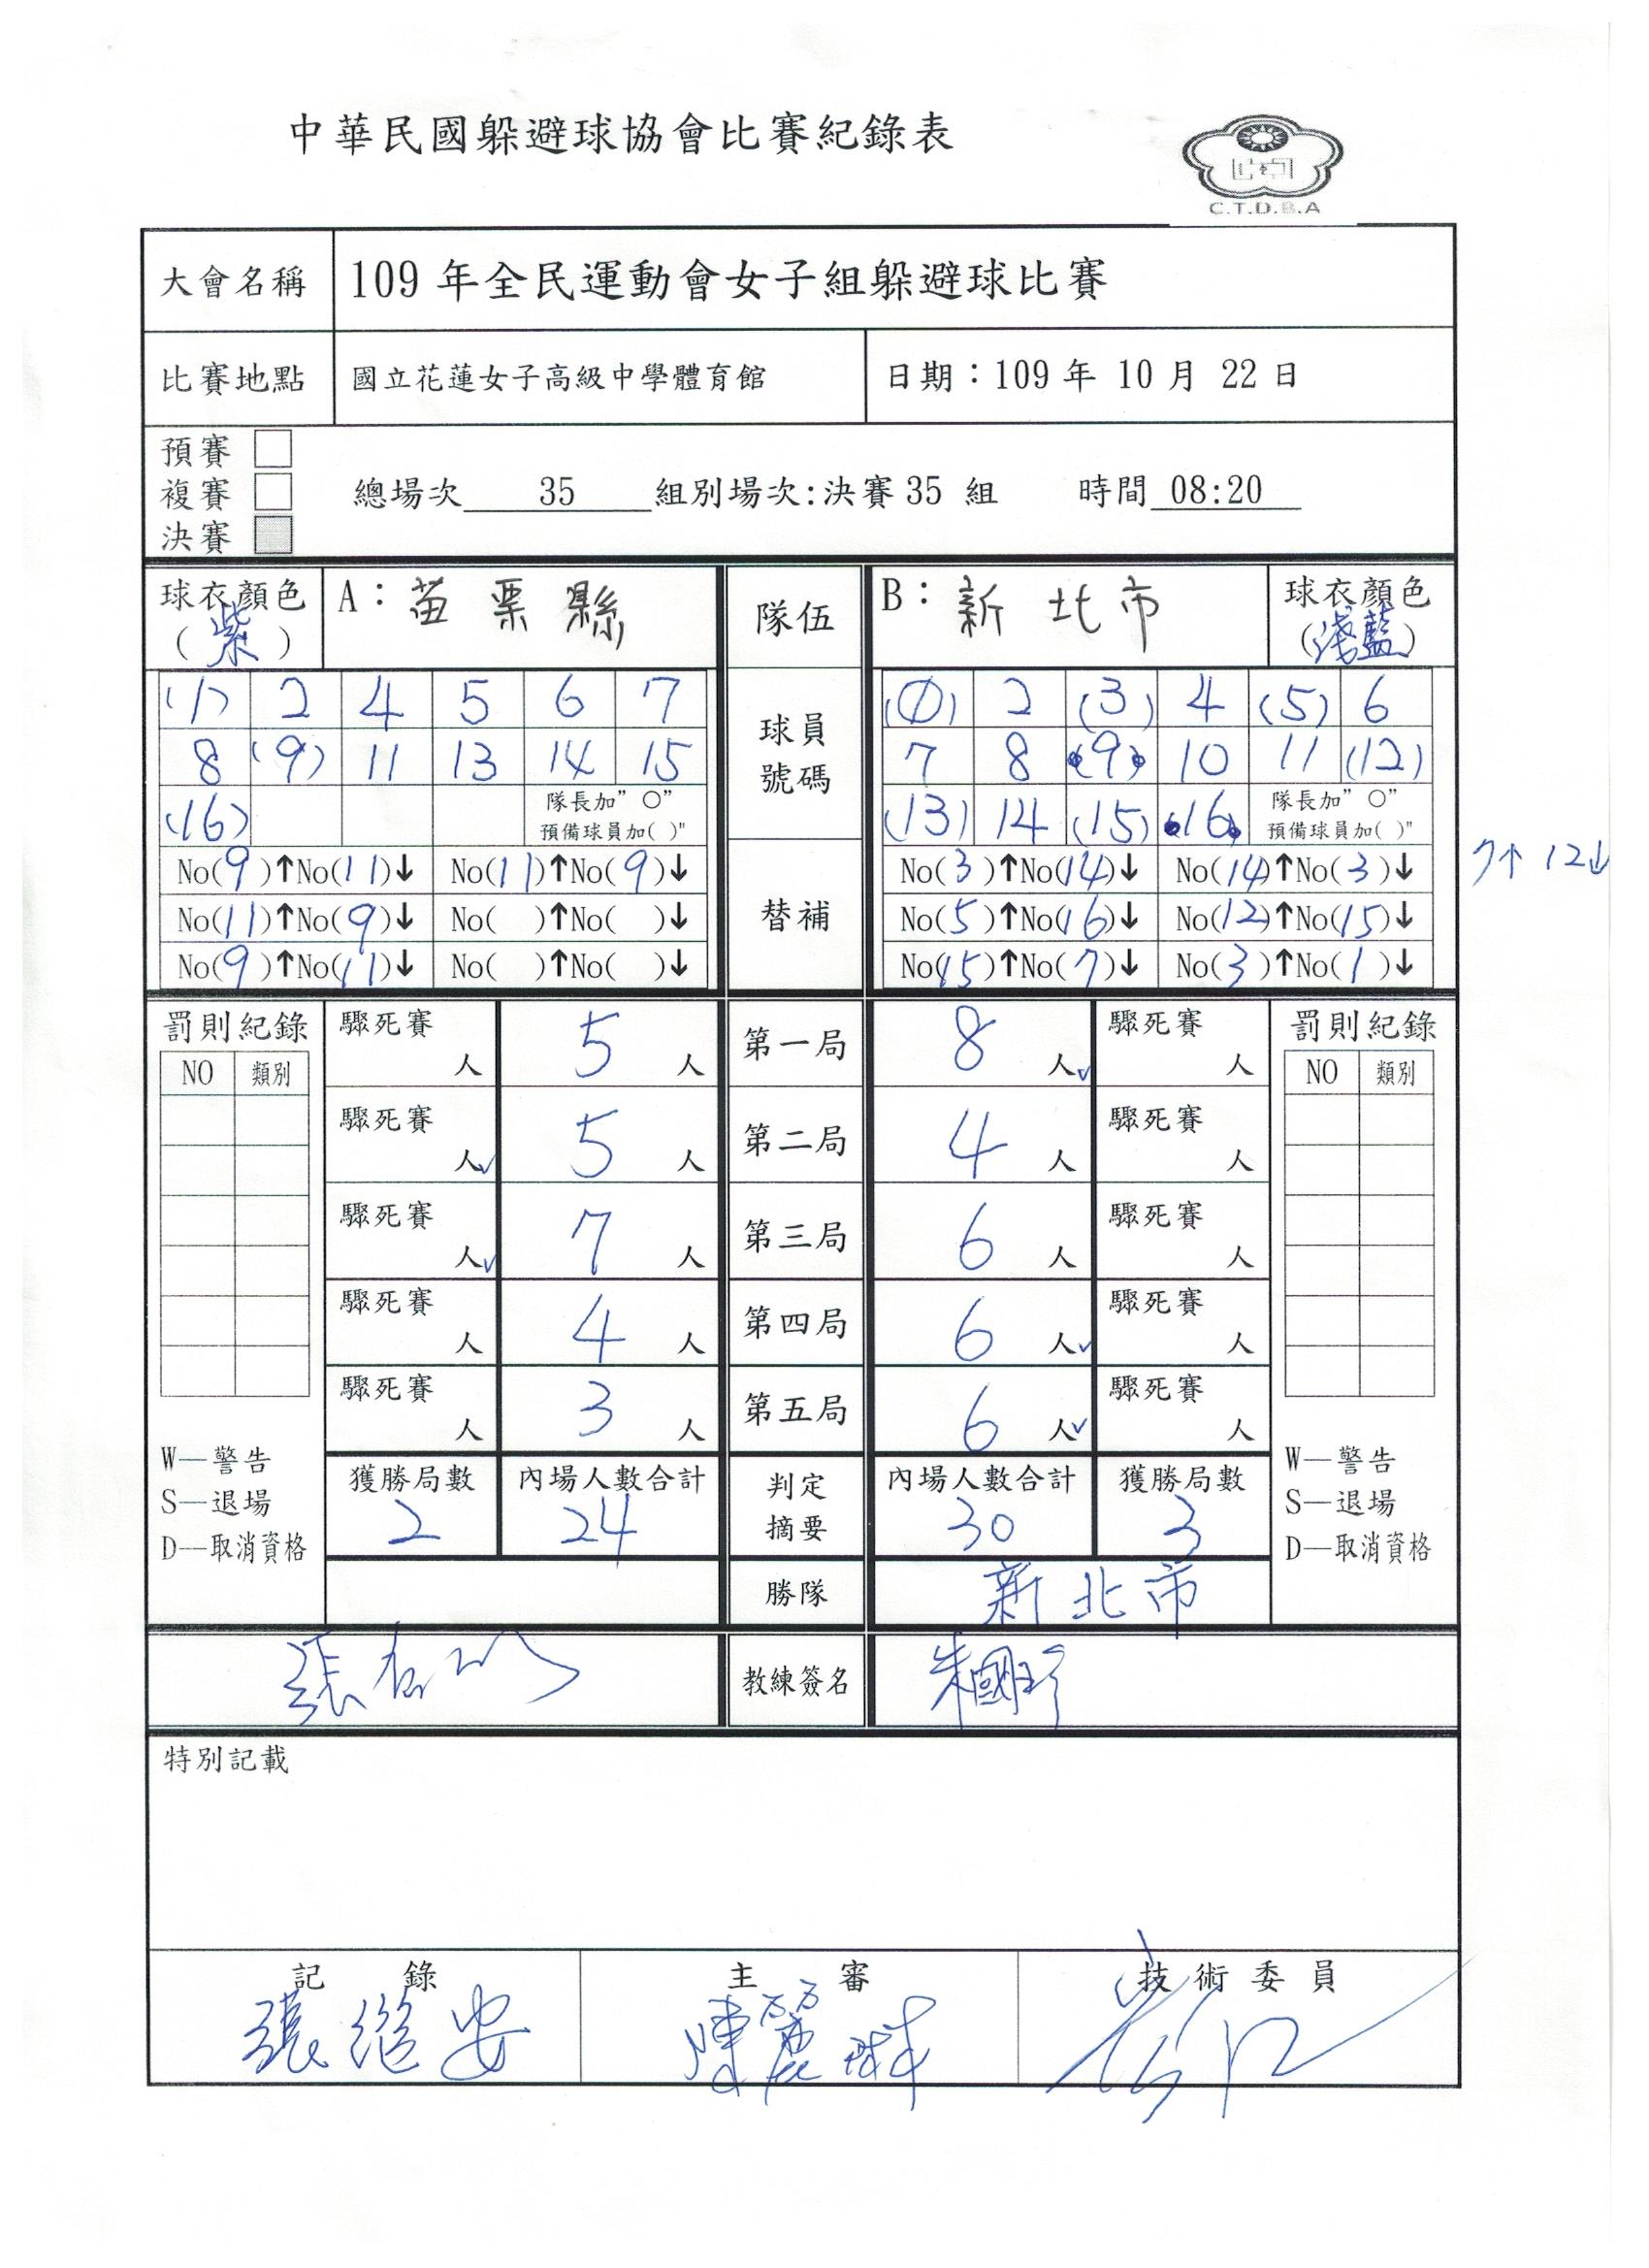 中華民國躲避球協會比賽紀錄表
C.T.D.B.A
大會名稱 109 年全民運動會女子組躲避球比賽
比賽地點 國立花蓮女子高級中學體育館 日期：109 年 10 月 22 日
預賽
複賽 總場次 35 組別場次:決賽 35 組 時間 08:20
決賽
球衣顏色 (紫) A：苗栗縣 隊伍 B：新北市 球衣顏色 (淺藍)
球員號碼
(1) 2 4 5 6 7
8 (9) 11 13 14 15
(16) 隊長加”○” 預備球員加( )"
(1) 2 (3) 4 (5) 6
7 8 (9) 10 11 (12)
(13) 14 (15) 16 隊長加”○” 預備球員加( )"
替補
No(9)↑No(11)↓ No(11)↑No(9)↓
No(11)↑No(9)↓ No( )↑No( )↓
No(9)↑No(11)↓ No( )↑No( )↓
No(3)↑No(14)↓ No(14)↑No(3)↓ 7↑ 12↓
No(5)↑No(16)↓ No(12)↑No(15)↓
No(15)↑No(7)↓ No(3)↑No(1)↓
罰則紀錄 NO 類別
驟死賽 人 5 人 第一局 8 人✓ 驟死賽 人
驟死賽 人✓ 5 人 第二局 4 人 驟死賽 人
驟死賽 人✓ 7 人 第三局 6 人 驟死賽 人
驟死賽 人 4 人 第四局 6 人✓ 驟死賽 人
驟死賽 人 3 人 第五局 6 人✓ 驟死賽 人
罰則紀錄 NO 類別
W—警告
S—退場
D—取消資格
獲勝局數 2 內場人數合計 24 判定摘要 內場人數合計 30 獲勝局數 3
W—警告
S—退場
D—取消資格
勝隊 新北市
教練簽名 朱國珍
特別記載
記錄 主審 技術委員
張繼安 陳麗琳